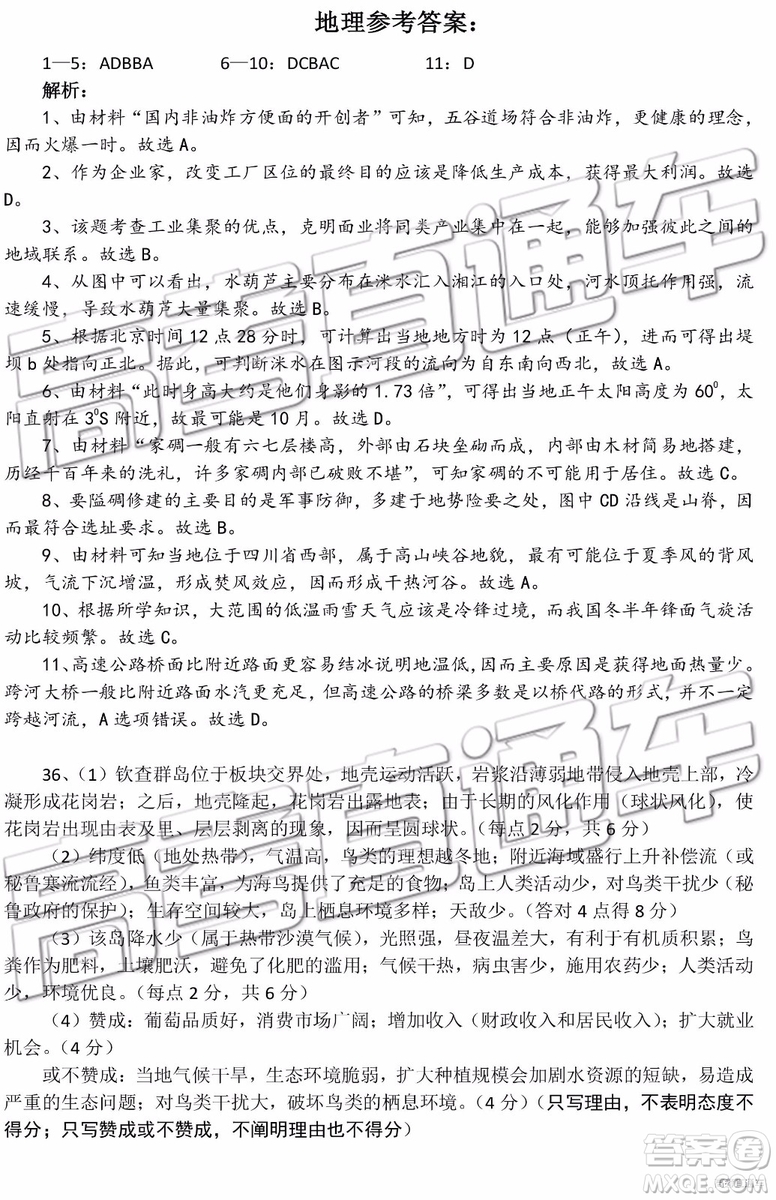 地理参考答案：
1—5：ADBBA 6—10：DCBAC 11：D
解析：
1、由材料“国内非油炸方便面的开创者”可知，五谷道场符合非油炸，更健康的理念，
因而火爆一时。故选 A。
2、作为企业家，改变工厂区位的最终目的应该是降低生产成本，获得最大利润。故选
D。
3、该题考查工业集聚的优点，克明面业将同类产业集中在一起，能够加强彼此之间的
地域联系。故选 B。
4、从图中可以看出，水葫芦主要分布在洣水汇入湘江的入口处，河水顶托作用强，流
速缓慢，导致水葫芦大量集聚。故选 B。
5、根据北京时间 12 点 28 分时，可计算出当地地方时为 12 点（正午），进而可得出堤
坝 b 处指向正北。据此，可判断洣水在图示河段的流向为自东南向西北，故选 A。
6、由材料“此时身高大约是他们身影的 1.73 倍”，可得出当地正午太阳高度为 60⁰，太
阳直射在 3⁰S 附近，故最可能是 10 月。故选 D。
7、由材料“家碉一般有六七层楼高，外部由石块垒砌而成，内部由木材简易地搭建，
历经千百年来的洗礼，许多家碉内部已残破不堪”，可知不能用于居住。故选 C。
8、要隘碉修建的主要目的是军事防御，多建于地势险要之处，图中 CD 沿线是山脊，
最符合选址要求。故选 B。
9、由材料可知当地位于四川省西部，属于高山峡谷地貌，最有可能位于夏季风的背风
坡，气流下沉增温，形成焚风效应，因而形成干热河谷。故选 A。
10、根据所学知识，大范围的低温雨雪天气应该是冷锋过境，而我国冬半年锋面气旋活
动比较频繁。故选 C。
11、高速公路桥面比附近路面更容易结冰说明地温低，而桥面获得的地面热量少。
跨河大桥一般比附近路面水汽更充足，但高速公路的桥梁多数是以桥代路的形式，并不一定
跨越河流，A 选项错误。故选 D。
36、（1）钦查群岛位于板块交界处，地壳运动活跃，岩浆沿薄弱地带侵入地壳上部，冷
凝形成花岗岩；之后，地壳隆起，花岗岩出露地表；由于长期的风化作用（球状风化），使
花岗岩出现由表及里、层层剥离的现象，因而呈圆球状。（每点 2 分，共 6 分）
（2）纬度低（地处热带），气温高，鸟类的理想越冬地；附近海域盛行上升补偿流（或
秘鲁寒流流经），鱼类丰富，为海鸟提供了充足的食物；岛上人类活动少，对鸟类干扰少（秘
鲁政府的保护）；生存空间较大，岛上栖息环境多样；天敌少。（答对 4 点得 8 分）
（3）该岛降水少（属于热带沙漠气候），光照强，昼夜温差大，有利于有机质积累；鸟
粪作为肥料，土壤肥沃，避免了化肥的滥用；气候干燥，病虫害少，农药使用少；人类活动
少，环境优良。（每点 2 分，共 6 分）
（4）赞成：葡萄品质好，消费市场广阔；增加收入（财政收入和居民收入）；扩大就业
机会。（4 分）
或不赞成：当地气候干旱，生态环境脆弱，扩大种植规模会加剧水资源的短缺，易造成
严重的生态问题；对鸟类干扰大，破坏鸟类的栖息环境。（4 分）（只写理由，不表明态度不
得分；只写赞成或不赞成，不阐明理由也不得分）
高考直通车
高考直通车
答案圈
MXQE.COM